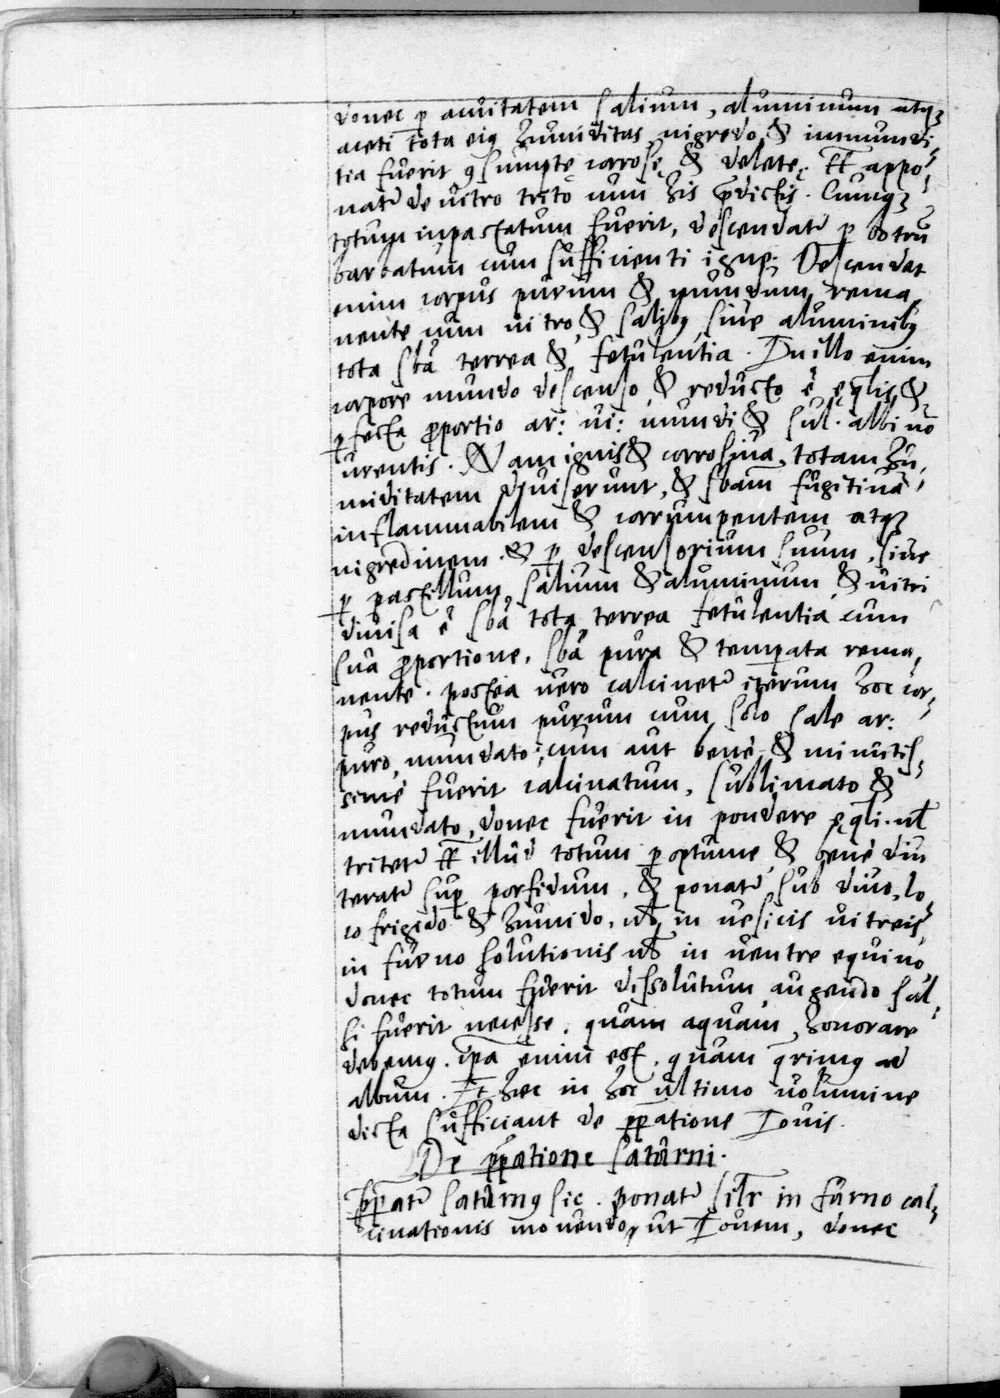 donec ꝑ acuitatem salium, aluminum atqꝫ
aceti tota eiꝰ humiditas, nigredo & immundi-
tia fuerit ꝯsumptę corrosę & deletę. appo-
natr̃ de uitro trito cum his p̃dictis. Cumqꝫ
totum inpastatum fuerit, descendatr̃ ꝑ botũ
barbatum cum sufficienti igne; Descendet
enim corpus purum & mundum, rema-
nente cum uitro & salibꝰ siue aluminibꝰ
tota sbã terrea & fetulentia. In illo enim
corpore mundo descenso & reducto ẽ ęqlis &
ꝑfecta ꝓportio ar: ui: mundi & sul. albi nõ
urentis. Nam ignis & corrosiua, totam hu-
miditatem diuiserunt, & sbam̃ fugitiuã,
inflammabilem & corrumpentem atqꝫ
nigredinem. & ꝑ descensorium suum, siue
ꝑ pastillum, salium & aluminum & uitri
diuisa ẽ sbã tota terrea fetulentia cum
sua ꝓportione, sbã pura & temperata rema-
nente. postea uero calcinetr̃ iterum hoc cor-
pus reductum purum cum solo sale ar:
puro, mundato; cum aut bene & minutis-
sime fuerit calcinatum, sublimato &
mundato, donec fuerit in pondere ęqli. ul̃
tritetr̃ illud totum ꝑoptume & bene diu
teratr̃ sup̱ porfidum, & ponatr̃ sub diuo, lo-
co frigido & humido, in uesicis uitreis
in furno solutionis in uentre equino
donec totum fuerit dissolutum augendo sal,
si fuerit necesse. quam aquam, honorare
debemꝰ. ip̃a enim est, quam q̃rimꝰ ad
album. Et hec in hoc ultimo uolumine
dicta sufficiant de p̱patione Iouis.
De p̱patione saturni.
p̱patr̃ saturnꝰ sic. ponatr̃ silr̃ in furno cal-
cinationis mouendo, ut Iouem, donec